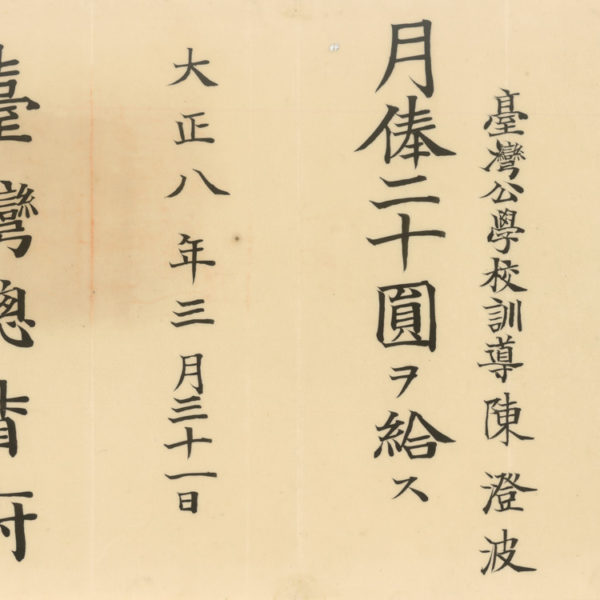 臺灣公學校訓導陳澄波
月俸二十圓ヲ給ス
大正八年三月三十一日
臺灣總督府